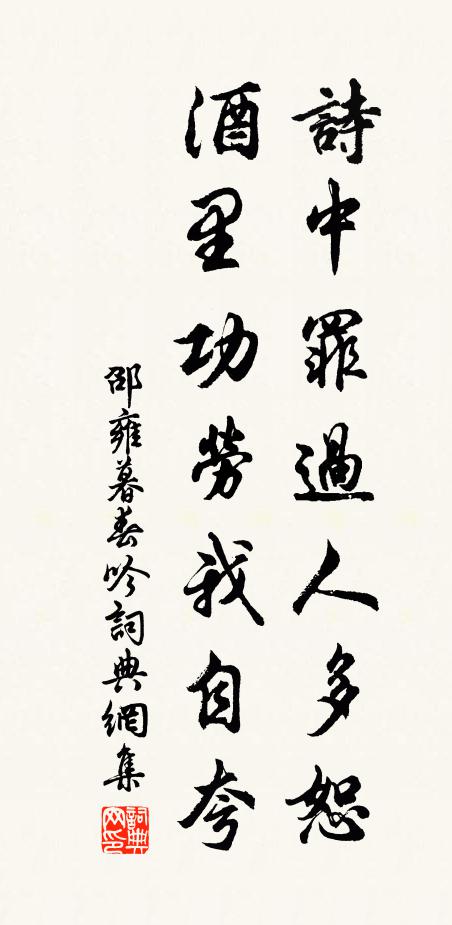 詩中罪過人多恕
酒里功勞我自夸
邵雍暮春吟詞典網集
詞典網印